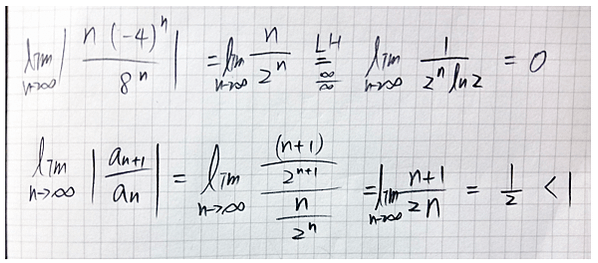 lim n→∞ | n(-4)^n / 8^n | = lim n→∞ n / 2^n LH = ∞/∞ lim n→∞ 1 / (2^n ln2) = 0
lim n→∞ | a_{n+1} / a_n | = lim n→∞ ((n+1) / 2^{n+1}) / (n / 2^n) = lim n→∞ (n+1) / 2n = 1/2 < 1